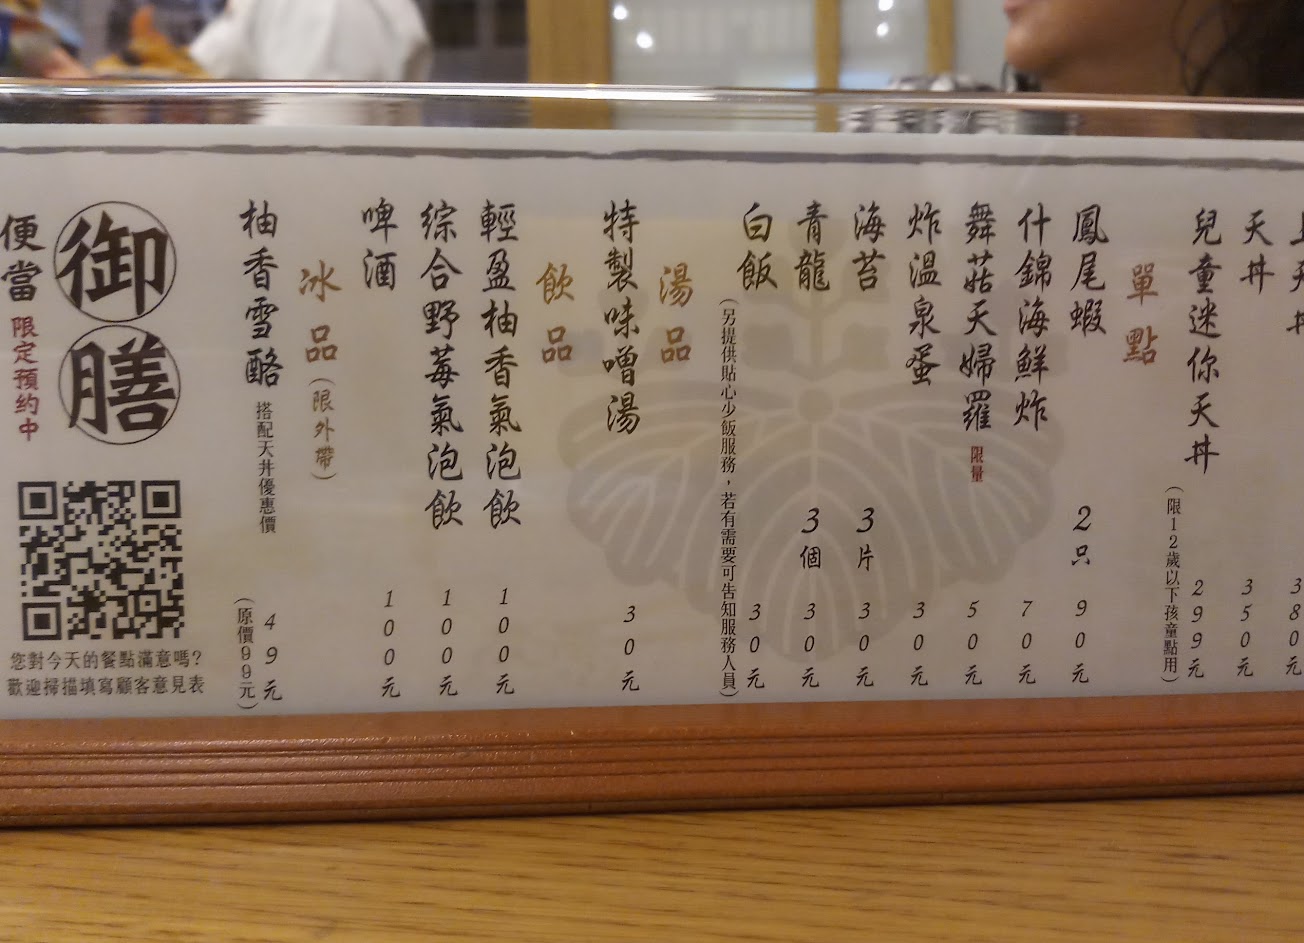 天丼 350元
兒童迷你天丼 299元
(限12歲以下孩童點用)
單點
鳳尾蝦 2只 90元
什錦海鮮炸 70元
舞菇天婦羅 限量 50元
炸溫泉蛋 30元
海苔 3片 30元
青龍 3個 30元
白飯 30元
(另提供貼心少飯服務，若有需要可告知服務人員)
湯品
特製味噌湯 30元
飲品
輕盈柚香氣泡飲 100元
綜合野莓氣泡飲 100元
啤酒 100元
冰品(限外帶)
柚香雪酪 搭配天丼優惠價 49元
(原價99元)
御膳
便當 限定預約中
您對今天的餐點滿意嗎?
歡迎掃描填寫顧客意見表